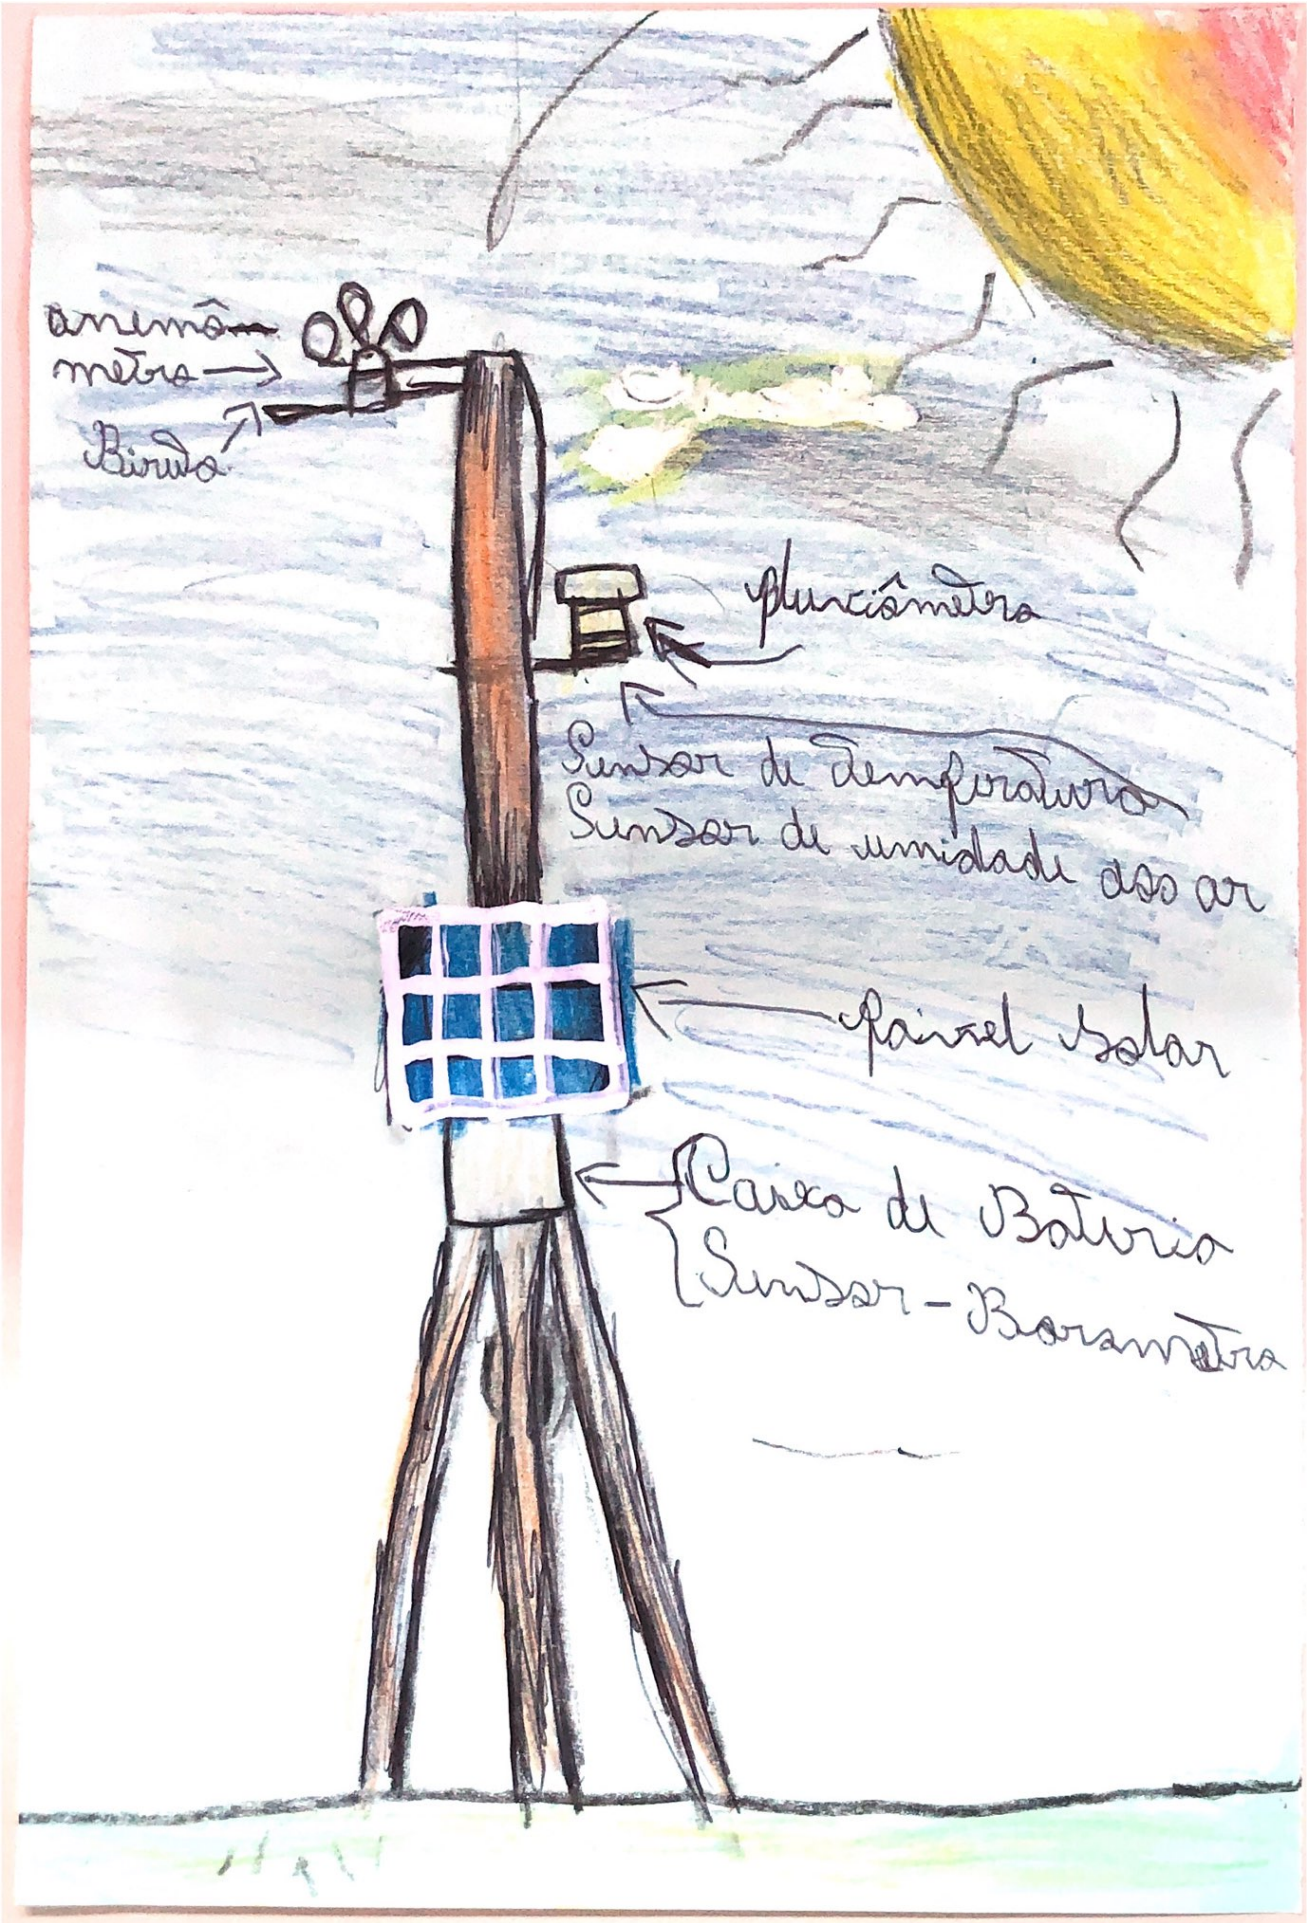 anemô-
metro
Biruta
pluviômetro
Sensor de temperatura
Sensor de umidade do ar
Painel solar
Caixa de Bateria
Sensor - Barometro